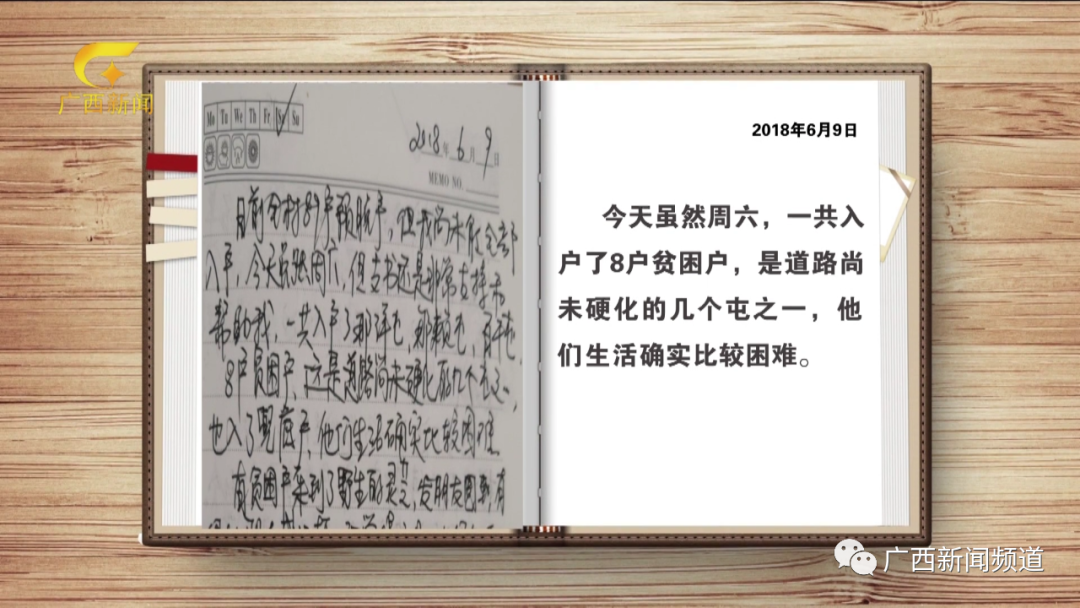 广西新闻
Mo Tu We Th Fr Sa Su
2018年6月9日
MEMO NO.
目前全村89户预脱户，但我尚未能全部
入户，今天虽然周六，但支书还是非常支持和
帮助我，一共入户了那洋屯，那赖屯，
8户贫困户，这是道路尚未硬化的几个屯之一，
也入了男渡户，他们生活确实比较困难
有贫困户采到了野生的灵芝，发朋友圈到，有
2018年6月9日
今天虽然周六，一共入
户了8户贫困户，是道路尚
未硬化的几个屯之一，他
们生活确实比较困难。
广西新闻频道